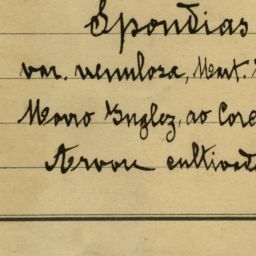 Spondias
var. venulosa, Mart.
Morro Inglez, ao
Arvore cultivad